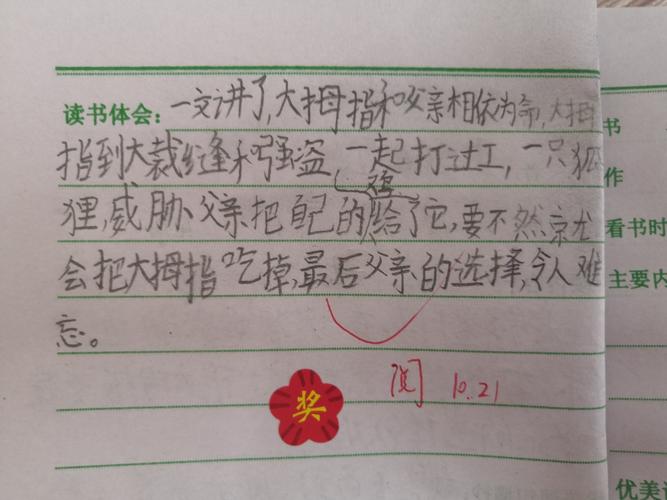 读书体会：一文讲了，大拇指和父亲相依为命，大拇
指到大裁缝和强盗一起打过工，一只狐
狸，威胁父亲把自己的鸡给了它，要不然就
会把大拇指吃掉，最后父亲的选择，令人难
忘。
阅 10.21
奖
书
作
看书时
主要内
优美